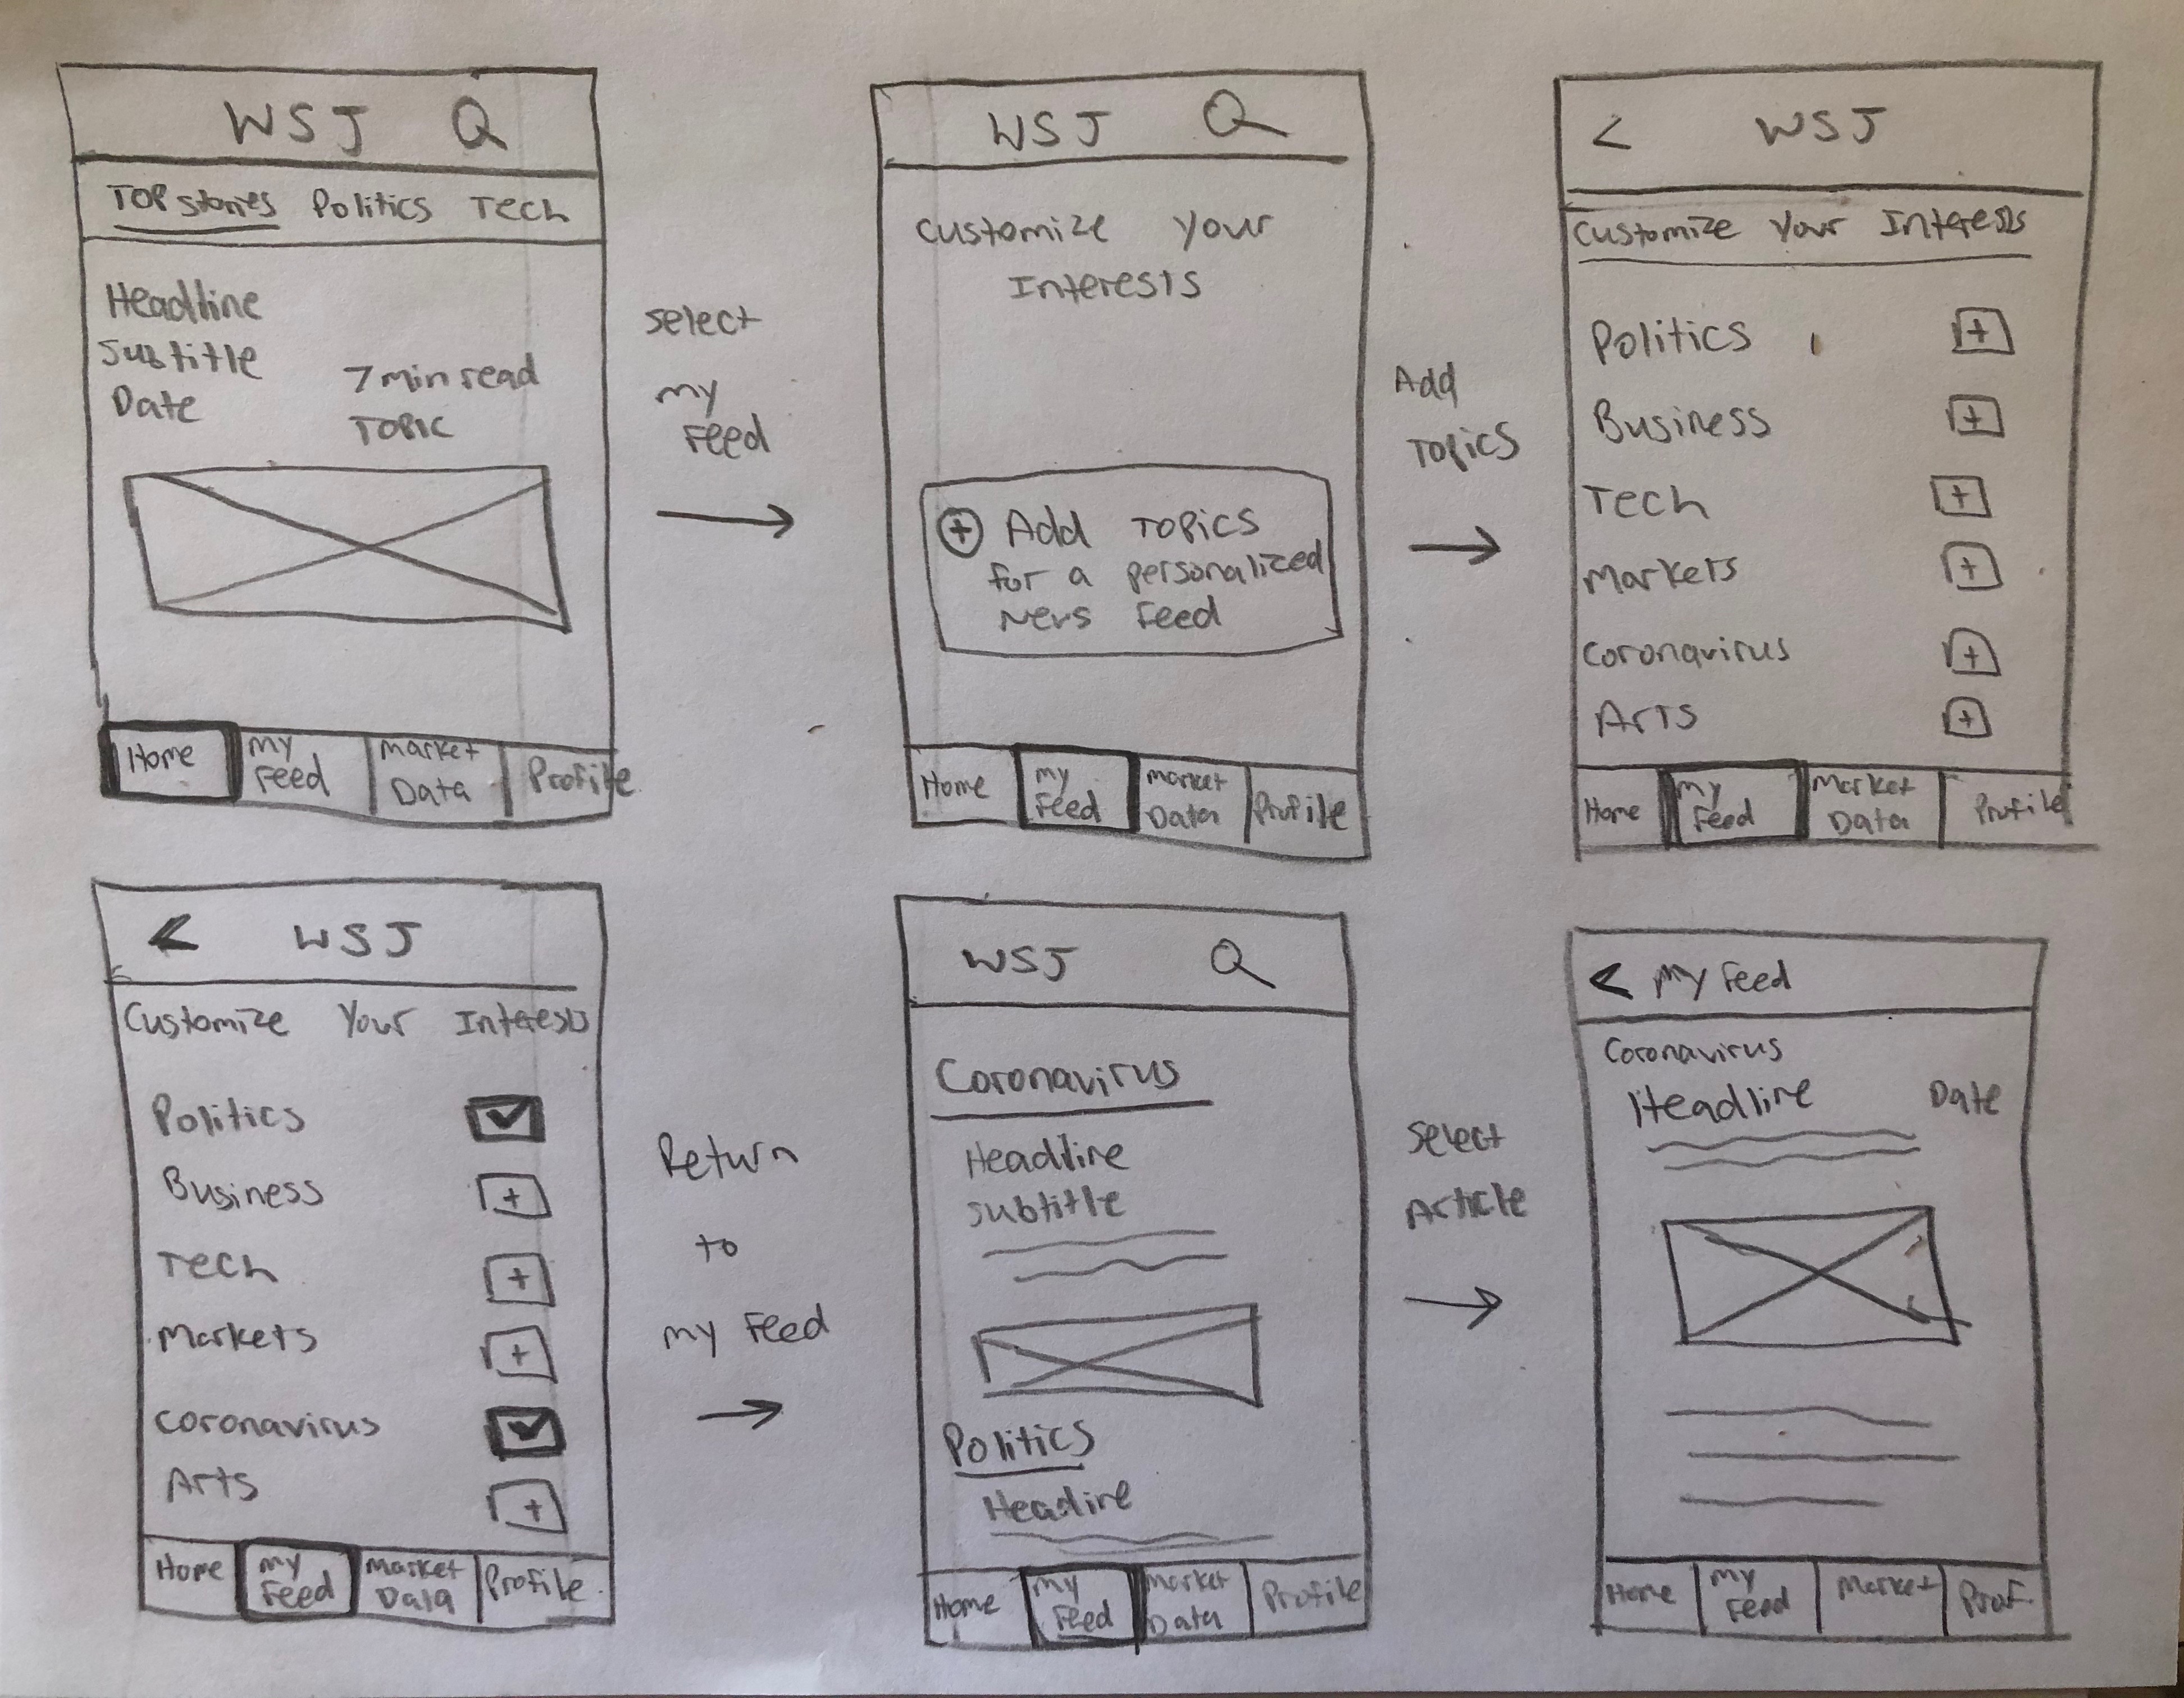 WSJ
TOP stories Politics Tech
Headline
Subtitle
Date
7 min read
TOPIC
Home
My
Feed
Market
Data
Profile
select
my
Feed
WSJ
Customize Your
Interests
+ Add Topics
for a personalized
News Feed
Home
My
Feed
Market
Data
Profile
Add
Topics
< WSJ
Customize Your Interests
Politics +
Business +
Tech +
Markets +
Coronavirus +
Arts +
Home
My
Feed
Market
Data
Profile
< WSJ
Customize Your Interests
Politics
Business +
Tech +
Markets +
Coronavirus
Arts +
Home
My
Feed
Market
Data
Profile
Return
to
my Feed
WSJ
Coronavirus
Headline
Subtitle
Politics
Headline
Home
My
Feed
Market
Data
Profile
Select
Article
< My Feed
Coronavirus
Headline Date
Home
My
Feed
Market
Prof.